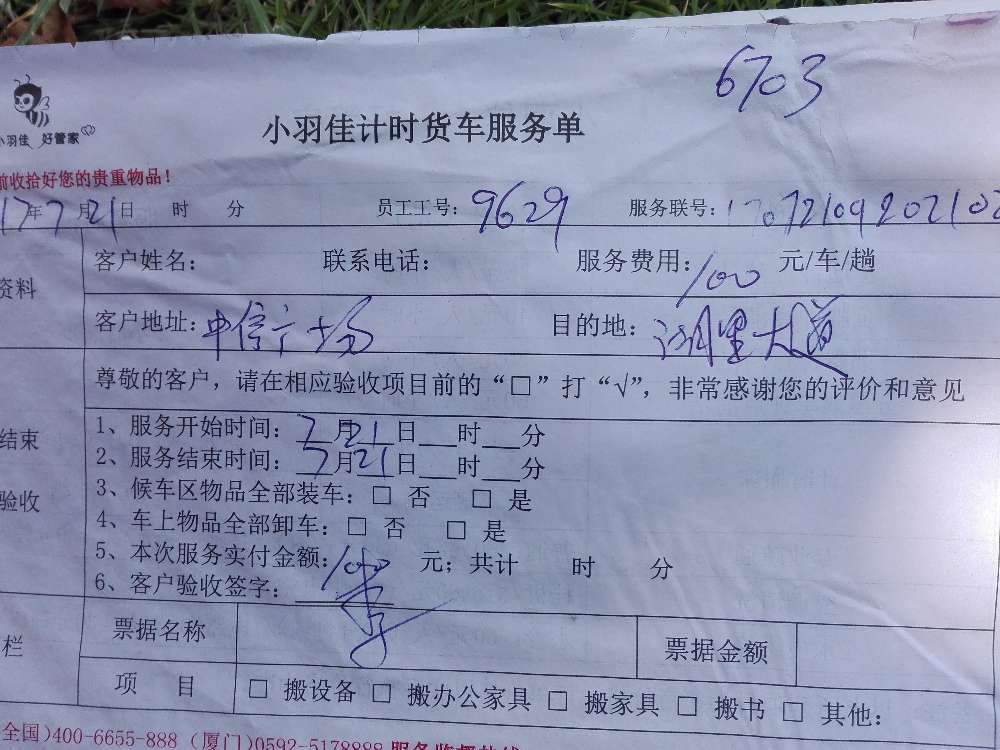 6703
小羽佳 好管家
小羽佳计时货车服务单
前收拾好您的贵重物品！
17年7月21日 时 分 员工工号：9629 服务联号：17072109202102
资料
客户姓名： 联系电话： 服务费用：100元/车/趟
客户地址：中信广场 目的地：湖里大道
尊敬的客户，请在相应验收项目前的“□”打“√”，非常感谢您的评价和意见
结束
验收
1、服务开始时间：7月21日___时___分
2、服务结束时间：7月21日___时___分
3、候车区物品全部装车：□ 否 □ 是
4、车上物品全部卸车：□ 否 □ 是
5、本次服务实付金额：100 元；共计 时 分
6、客户验收签字：
栏
票据名称 票据金额
项 目 □ 搬设备 □ 搬办公家具 □ 搬家具 □ 搬书 □ 其他：
全国)400-6655-888 (厦门)0592-5178888 服务监督热线